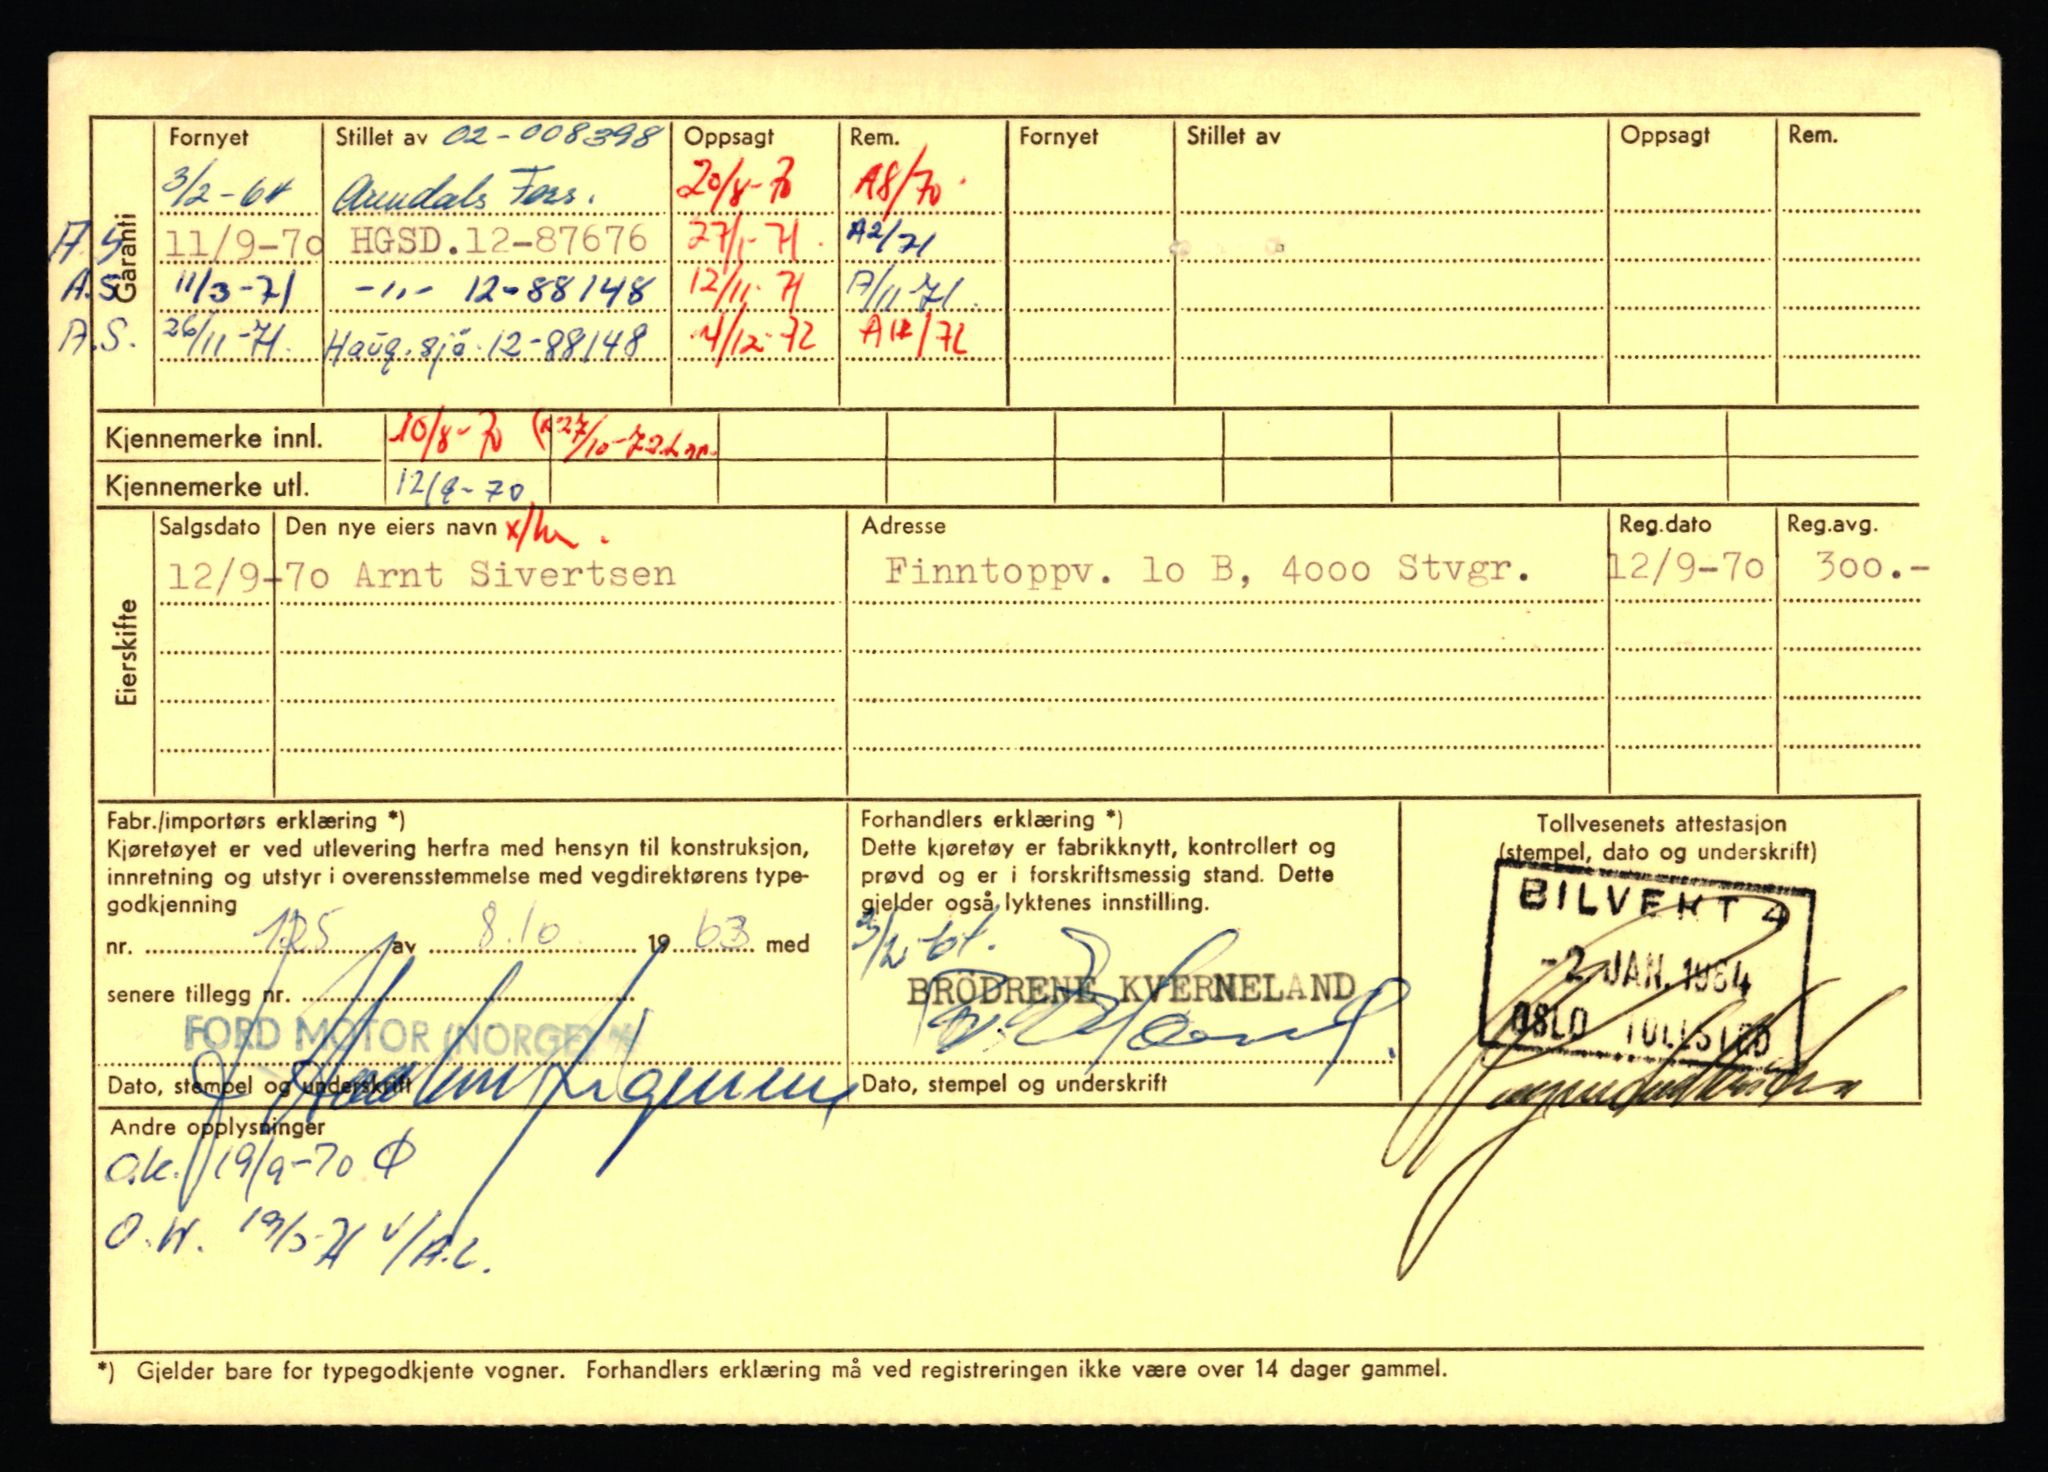 Garanti
Fornyet Stillet av 02-008398 Oppsagt Rem. Fornyet Stillet av Oppsagt Rem.
3/2-64 Arendals Fors. 20/8-70 A8/70
A.S 11/9-70 HGSD.12-87676 27/1-71 A2/71
A.S 11/3-71 -"- 12-88148 12/11-71 A/11-71.
A.S. 26/11-71. Haug.sjø.12-88148 /12-72 /72
Kjennemerke innl. 10/8-70 27/10-72
Kjennemerke utl. 12/9-70
Eierskifte
Salgsdato Den nye eiers navn Adresse Reg.dato Reg.avg.
12/9-70 Arnt Sivertsen Finntoppv. 10 B, 4000 Stvgr. 12/9-70 300.-
Fabr./importørs erklæring *)
Kjøretøyet er ved utlevering herfra med hensyn til konstruksjon,
innretning og utstyr i overensstemmelse med vegdirektørens type-
godkjenning
nr. 125 av 8.10 1963 med
senere tillegg nr.
FORD MOTOR (NORGE) A/S
Dato, stempel og underskrift
Forhandlers erklæring *)
Dette kjøretøy er fabrikknytt, kontrollert og
prøvd og er i forskriftsmessig stand. Dette
gjelder også lyktenes innstilling.
3/2-64.
BRÖDRENE KVERNELAND
Dato, stempel og underskrift
Tollvesenets attestasjon
(stempel, dato og underskrift)
BILVEKT 4
-2 JAN. 1964
OSLO TOLLSTED
Andre opplysninger
O.K. 19/9-70
O.W. 19/3-71 A.L.
*) Gjelder bare for typegodkjente vogner. Forhandlers erklæring må ved registreringen ikke være over 14 dager gammel.